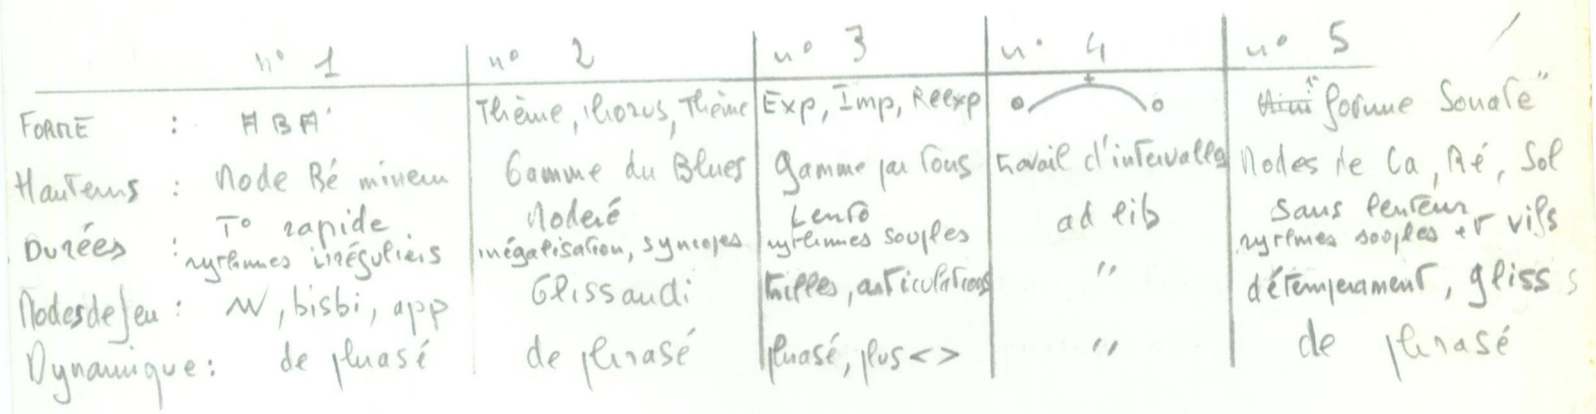 n° 1 n° 2 n° 3 n° 4 n° 5
FORME : A B A' Thème, Chorus, Thème Exp, Imp, Reexp "forme Sonate"
Hauteurs : Mode Ré mineur Gamme du Blues gamme par tons travail d'intervalles Modes de La, Ré, Sol
T° rapide Moderé Lento ad lib Sans lenteur
Durées : rythmes irréguliers inégalisation, syncopes rythmes souples rythmes souples et vifs
Modes de jeu : , bisbi, app Glissandi trilles, articulations " détemperament, gliss
Dynamique : de phrasé de phrasé phrasé, plus < > " de phrasé